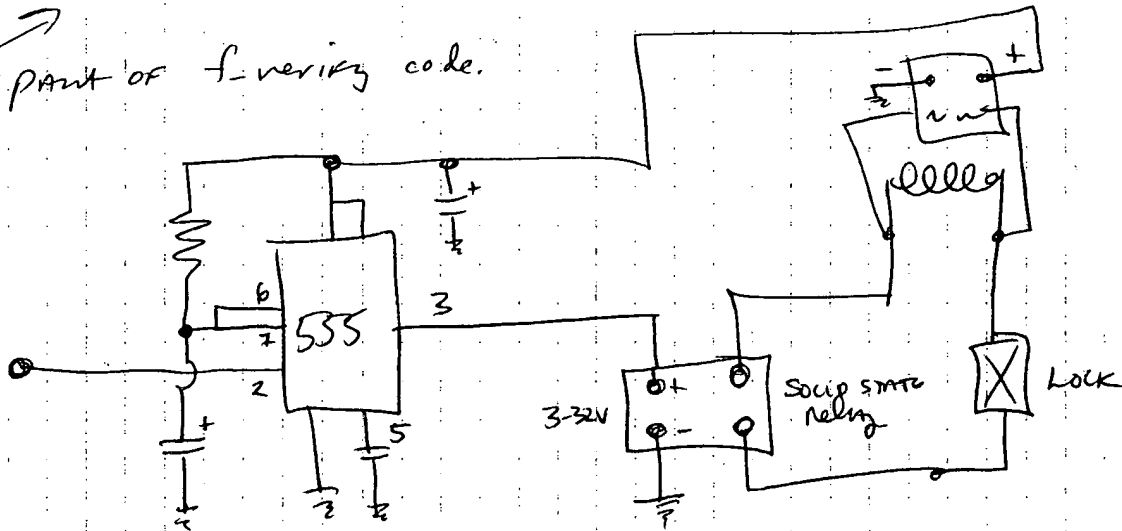 part of code.
- +
~ ~
+
6
555
7
3
2
5
+
3-32V
+
-
solid state
relay
LOCK